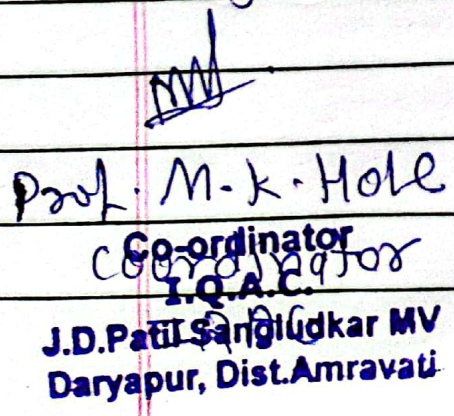 Prof. M. K. Hole
Coordinator
Co-ordinator
I.Q.A.C.
J.D.Patil Sangludkar MV
Daryapur, Dist.Amravati